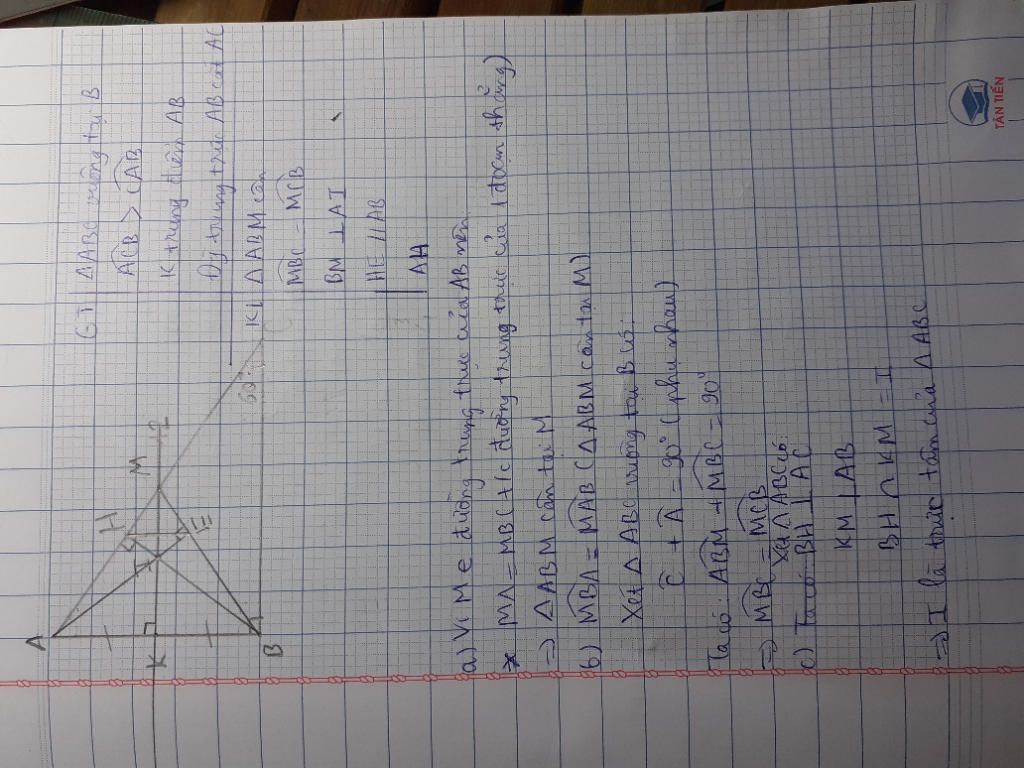 A
H
M
K
I
E
B
60°
C
GT | ΔABC vuông tại B
ACB > CAB
K trung điểm AB
Đg trung trực AB cắt AC
KL ΔABM cân
MBC = MCB
BM ⊥ AI
HE // AB
AH
a) Vì M ∈ đường trung trực của AB nên
MA = MB (+/c đường trung trực của 1 đoạn thẳng)
=> ΔABM cân tại M
b) MBA = MAB (ΔABM cân tại M)
Xét ΔABC vuông tại B có:
C + A = 90° (phụ nhau)
Ta có: ABM + MBC = 90°
=> MBC = MCB
Xét ΔABC có:
c) Ta có BH ⊥ AC
KM ⊥ AB
BH ∩ KM = I
=> I là trực tâm của ΔABC
TÂN TIẾN